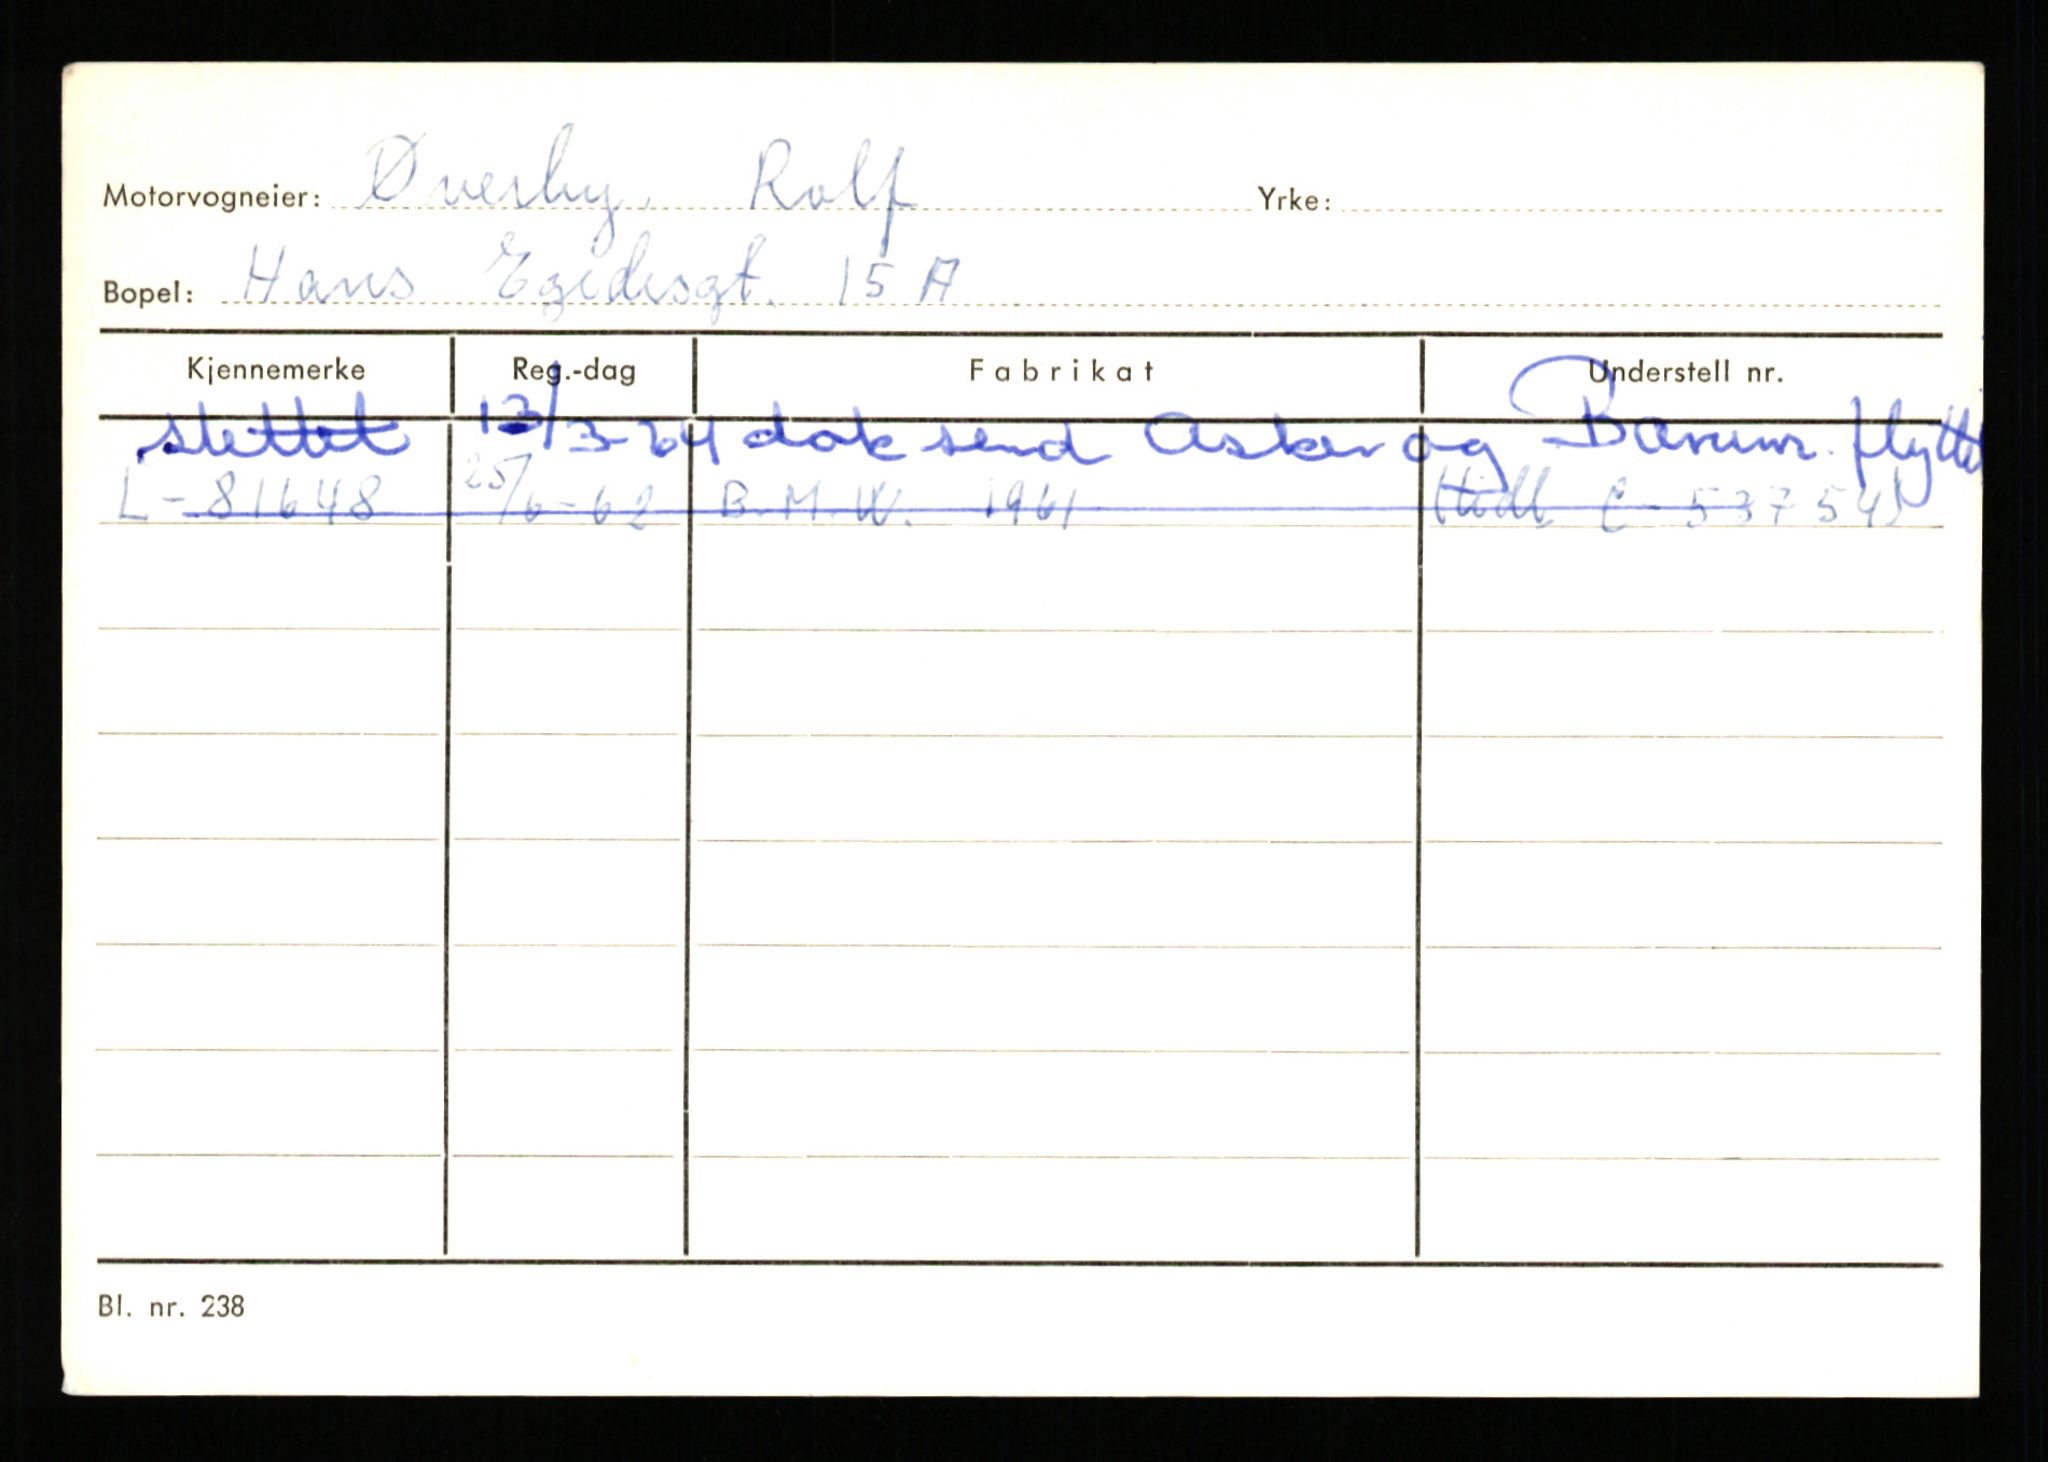 Motorvogneier: Øverby, Rolf Yrke:
Bopel: Hans Egedesgt. 15 A
Kjennemerke Reg.-dag Fabrikat Understell nr.
slettet 13/3-64 dok send Asker og Bærum. flyttet
L-81648 25/6-62 B.M.W. 1961 (tidl C-53754)
Bl. nr. 238